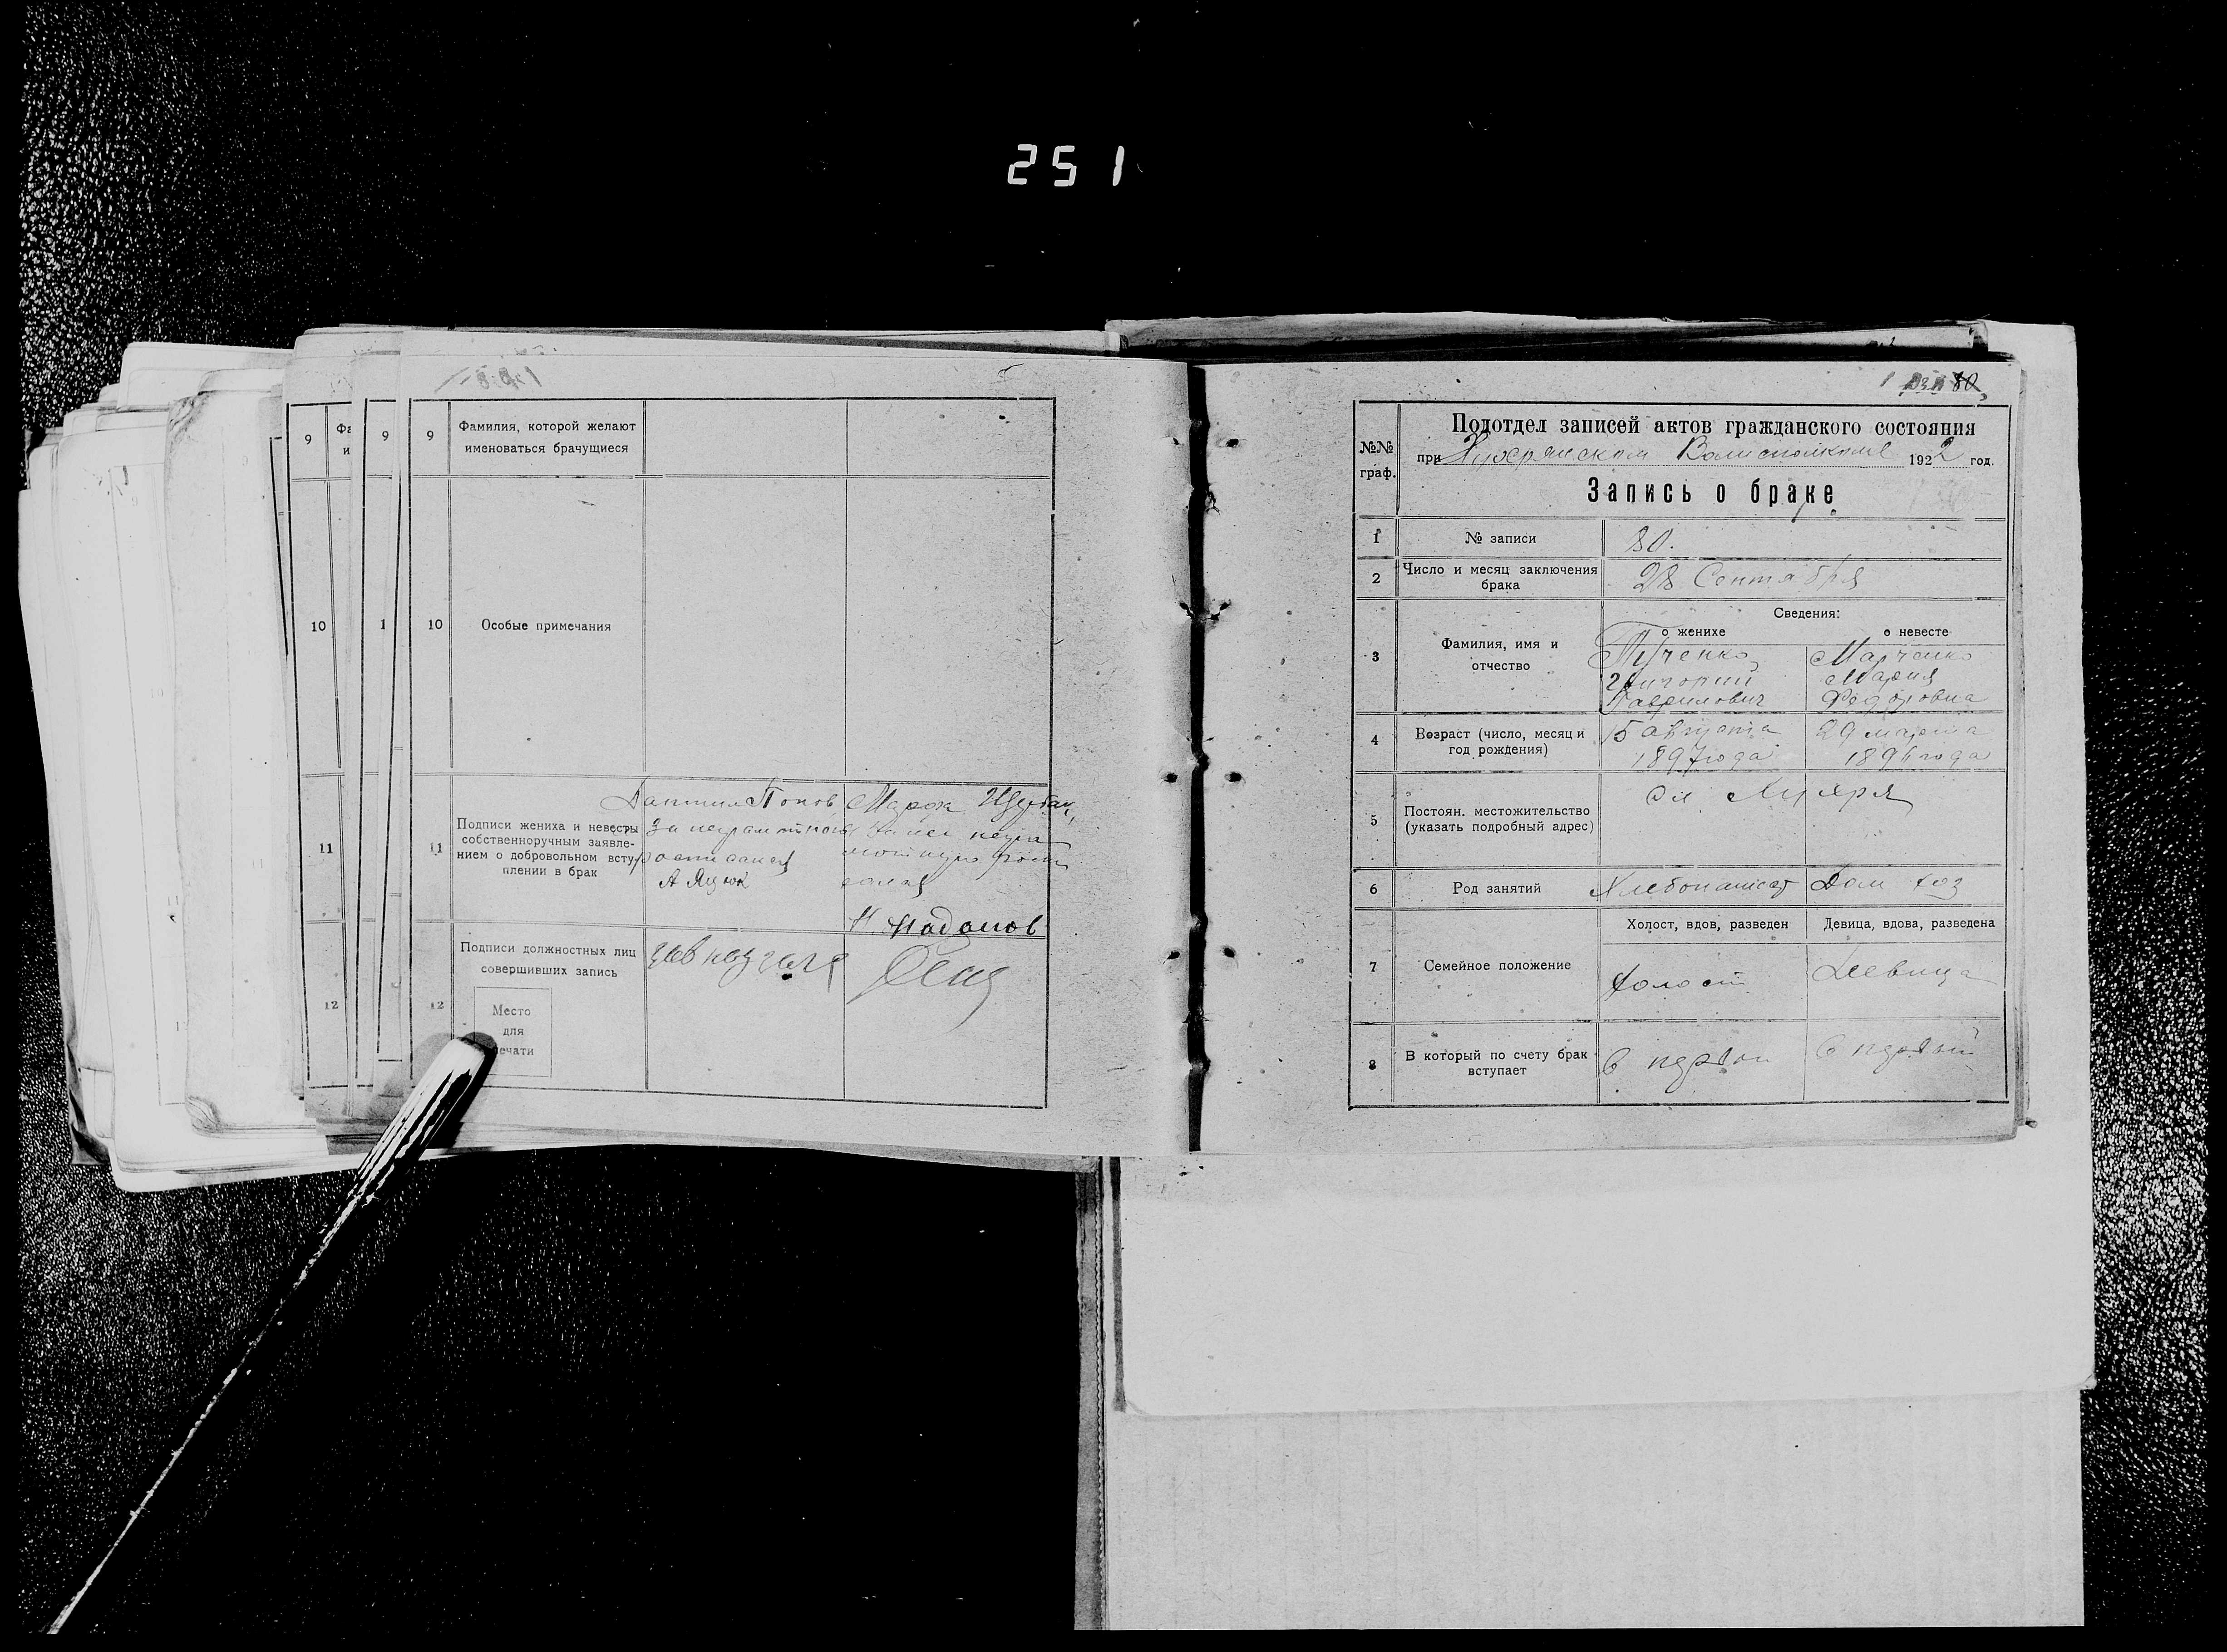 251
9
Фа
и
9
10
1
11
12
9
Фамилия, которой желают
именоваться брачущиеся
10
Особые примечания
11
Подписи жениха и невесты
собственноручным заявле-
нием о добровольном всту-
плении в брак
Попов
За неграмотного
расписался
А Яцюк
за нее негра
мотную роспи
салася
12
Подписи должностных лиц
совершивших запись
Место
для
печати
80
№№
граф.
Подотдел записей актов гражданского состояния
при Волисполкоме 1922 год.
Запись о браке
1
№ записи
80.
2
Число и месяц заключения
брака
28 Сентября
Сведения:
о женихе
о невесте
3
Фамилия, имя и
отчество
Григорий
Гаврилович
Марченко
Мария
Федоровна
4
Возраст (число, месяц и
год рождения)
15 августа
1897 года
29 марта
года
5
Постоян. местожительство
(указать подробный адрес)
6
Род занятий
Хлебопашест
Дом хоз
7
Семейное положение
Холост, вдов, разведен
Девица, вдова, разведена
холост
Девица
8
В который по счету брак
вступает
в первый
в первый